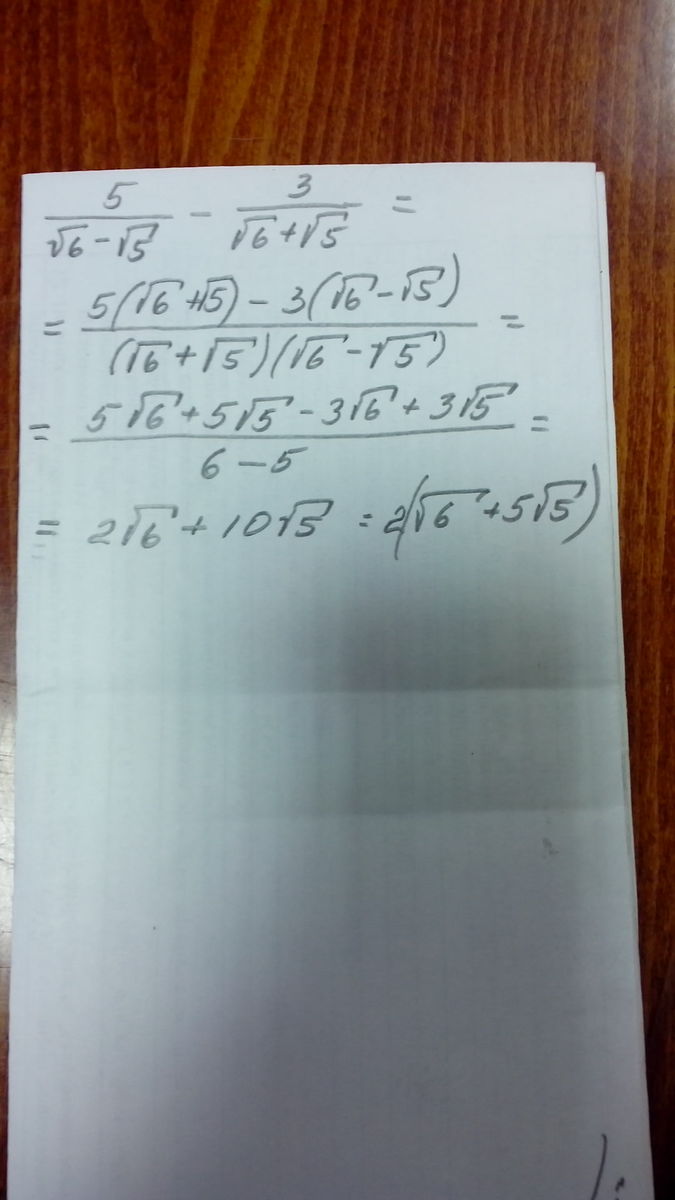 5/(√6 - √5) - 3/(√6 + √5) =
= (5(√6 + √5) - 3(√6 - √5))/((√6 + √5)(√6 - √5)) =
= (5√6 + 5√5 - 3√6 + 3√5)/(6 - 5) =
= 2√6 + 10√5 = 2(√6 + 5√5)